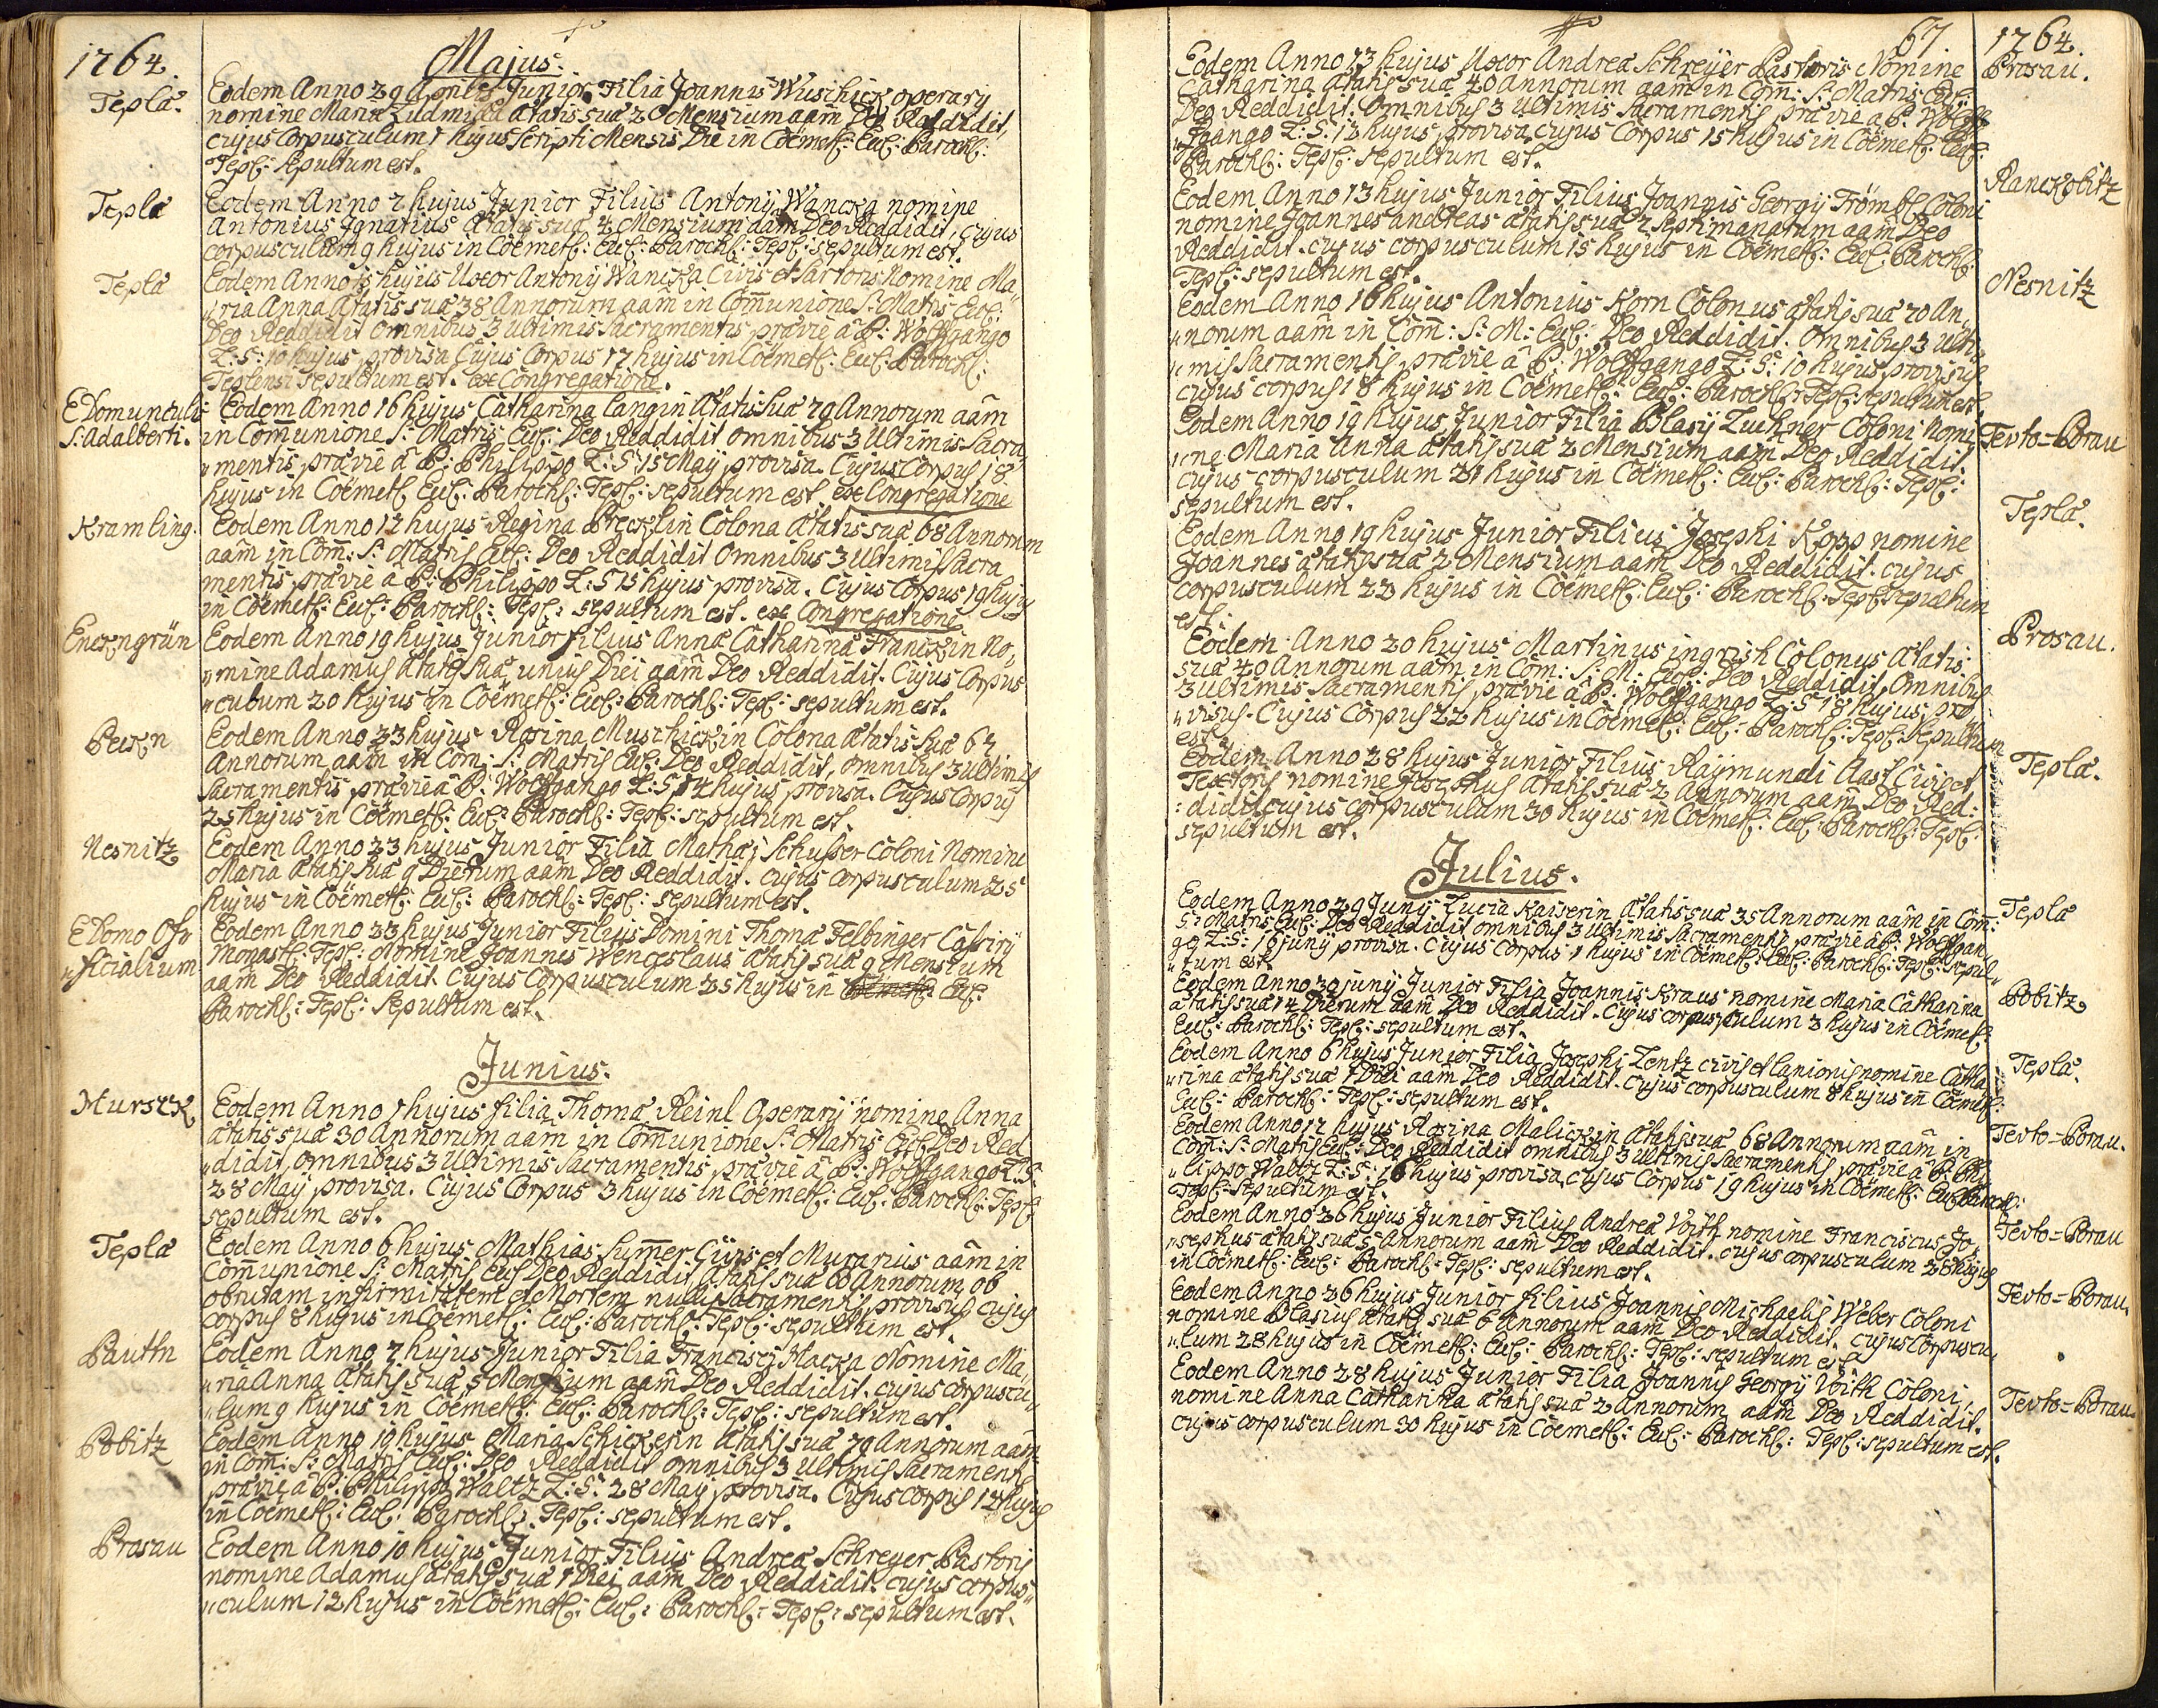 1764.
Majus.
Tepla.
Eodem Anno 29 Aprilis Junior Filia Joannis Wuschick operarÿ
nomine Maria Ludmila ætatis suæ 20 Mensium aãm Deo Reddidit,
cujus Corpusculum 1 hujus scripti Mensis Die in Cöemet: Eccl: Paroch:
Tepl: sepultum est.
Tepla
Eodem Anno 7 hujus Junior Filius Antonÿ Wancka nomine
Antonius Ignatius ætatis suæ 4 Mensium aãm Deo Reddidit, cujus
corpusculum 9 hujus in Cöemet: Eccl: Paroch: Tepl: sepultum est.
Tepla
Eodem Anno 15 hujus Uxor Antonÿ Wancka Civis et Sartoris Nomine Ma„
„ria Anna ætatis suæ 38 Annorum aãm in Com̃unione S: Matris Eccl:
Deo Reddidit omnibus 3 ultimis sacramentis prævie â P: Wolffgango
Z: S: 10 hujus provisa Cujus Corpus 17 hujus in Cöemet: Eccl: Paroch:
Teplensi sepultum est. ex Congregatione.
E Domuncula
S: Adalberti.
Eodem Anno 16 hujus Catharina Langin ætatis suæ 79 Annorum aãm
in Com̃unione S: Matris Eccl: Deo Reddidit omnibus 3 Ultimis Sacra„
„mentis prævie â P: Philippo Z: S: 15 Maÿ provisa. Cujus Corpus 18
hujus in Cöemet: Eccl: Paroch: Tepl: sepultum est ex Congregatione
Kramling.
Eodem Anno 17 hujus Regina Brecklin Colona ætatis suæ 68 Annorum
aãm in Com̃: S: Matris Eccl: Deo Reddidit omnibus 3 Ultimis Sacra
mentis prævie â P: Philippo Z: S 15 hujus provisa. Cujus Corpus 19 hujus
in Cöemet: Eccl: Paroch: Tepl: sepultum est. ex Congregatione
Enckngrün
Eodem Anno 19 hujus Junior filius Anna Catharina Franckin No„
„mine Adamus ætatis suæ unius Diei aãm Deo Reddidit. Cujus Corpus
„culum 20 hujus in Cöemet: Eccl: Paroch: Tepl: sepultum est.
Peckn
Eodem Anno 23 hujus Rosina Muschickin Colona ætatis suæ 64
Annorum aãm in Com: S: Matris Eccl: Deo Reddidit, omnibus 3 ultimis
Sacramentis prævie â P: Wolffgango Z: S 14 hujus provisa. Cujus Corpus
25 hujus in Cöemet: Eccl: Paroch: Tepl: sepultum est.
Nesnitz
Eodem Anno 23 hujus Junior Filia Mathæi Schusser Coloni Nomine
Maria ætatis suæ 9 Dierum aãm Deo Reddidit. cujus corpusculum 25
hujus in Cöemet: Eccl: Paroch: Tepl: sepultum est.
E Domo Off„
„ficialium
Eodem Anno 23 hujus Junior Filius Domini Thomæ Felbinger Cassirÿ
Monast: Tepl: Nomine Joannes Wenceslaus ætatis suæ 9 Mensium
aãm Deo Reddidit Cujus Corpusculum 25 hujus in Cöemet: Eccl:
Paroch: Tepl: sepultum est.
Junius.
Mursck
Eodem Anno 1 hujus filia Thomæ Reinl Operarÿ nomine Anna
ætatis suæ 30 Annorum aãm in Com̃unione S: Matris Eccl: Deo Red
„didit, omnibus 3 Ultimis Sacramentis prævie â P: Wolffgango Z: S:
28 Maÿ provisa. Cujus Corpus 3 hujus in Cöemet: Eccl: Paroch: Tepl:
sepultum est.
Tepla
Eodem Anno 6 hujus Mathias Sum̃er Civis et Murarius aãm in
Com̃unione S: Matris Eccl Deo Reddidit, ætatis suæ 60 Annorum, ob
obrutam infirmitatem et Mortem nullis Sacramentis provisus cujus
corpus 8 hujus in Cöemet: Eccl: Paroch: Tepl: sepultum est.
Pauttn
Eodem Anno 7 hujus Junior Filia Francisci Macka Nomine Ma„
„ria Anna ætatis suæ 5 Mensium aãm Deo Reddidit. cujus corpuscu„
„lum 9 hujus in Cöemet: Eccl: Paroch: Tepl: sepultum est.
Pobitz
Eodem Anno 10 hujus Maria Schickerin ætatis suæ 79 Annorum aãm
in Com: S: Matris Eccl: Deo Reddidit omnibus 3 Ultimis Sacramentis
prævie â P: Philippo Waltz Z: S: 28 Maÿ provisa. Cujus Corpus 12 hujus
in Cöemet: Eccl: Paroch: Tepl: sepultum est.
Prosau
Eodem Anno 10 hujus Junior Filius Andreæ Schreyer Pastoris
nomine Adamus ætatis suæ 1 Diei aãm Deo Reddidit. cujus corpus„
„culum 12 hujus in Cöemet: Eccl: Paroch: Tepl: sepultum est.
67.
1764.
Prosau.
Eodem Anno 13 hujus Uxor Andreæ Schreÿer Pastoris Nomine
Catharina ætatis suæ 40 Annorum aãm in Com: S: Matris Eccl:
Deo Reddidit. Omnibus 3 ultimis sacramentis prævie â P: Wolff
„gango Z: S: 12 hujus provisa, cujus Corpus 15 hujus in Cöemet: Eccl:
Paroch: Tepl: sepultum est.
Ranckobitz
Eodem Anno 13 hujus Junior Filius Joannis Georgÿ Frömbl Coloni
nomine Joannes andreas ætatis suæ 7 septimanarum aãm Deo
Reddidit. cujus corpusculum 15 hujus in Cöemet: Eccl: Paroch:
Tepl: sepultum est.
Nesnitz
Eodem Anno 16 hujus Antonius Korn Colonus ætatis suæ 70 An„
„norum aãm in Com̃: S: M: Eccl: Deo Reddidit. Omnibus 3 ulti„
„mis Sacramentis prævie â P: Wolffgango Z: S: 10 hujus provisus
cujus corpus 18 hujus in Cöemet: Eccl: Paroch: Tepl: sepultum est.
Tevto=Borau
Eodem Anno 19 hujus Junior Filia Blasÿ Zuckner Coloni Nomi
„ne Maria Anna ætatis suæ 2 Mensium aãm Deo Reddidit.
cujus corpusculum 21 hujus in Cöemet: Eccl: Paroch: Tepl:
sepultum est.
Tepla.
Eodem Anno 19 hujus Junior Filius Josephi Kopp nomine
Joannes ætatis suæ 2 Mensium aãm Deo Reddidit. cujus
corpusculum 22 hujus in Cöemet: Eccl: Paroch: Tepl: sepultum
est.
Prosau.
Eodem Anno 20 hujus Martinus ingrish Colonus ætatis
suæ 40 Annorum aãm in Com: S: M: Eccl: Deo Reddidit, Omnibus
3 ultimis Sacramentis prævie â P: Wolffgango Z: S 18 hujus pro
„visus. Cujus Corpus 22 hujus in Cöemet: Eccl: Paroch: Tepl: sepultum
est.
Tepla.
Eodem Anno 28 hujus Junior Filius Raÿmundi Aast Civis et
Textoris nomine Josephus ætatis suæ 2 Annorum aãm Deo Red:
:didit cujus corpusculum 30 hujus in Cöemet: Eccl: Paroch: Tepl:
sepultum est.
Julius.
Tepla
Eodem Anno 29 Junÿ Lucia Kaiserin ætatis suæ 35 Annorum aãm in Com̃:
S: Matris Eccl: Deo Reddidit omnibus 3 ultimis Sacramentis prævie â P: Wolffgan„
go Z: S: 16 junÿ provisa. Cujus Corpus 1 hujus in Cöemet: Eccl: Paroch: Tepl: sepul„
„tum est.
Pobitz
Eodem Anno 30 junÿ Junior Filia Joannis Kraus nomine Maria Catharina
ætatis suæ 14 Dierum aãm Deo Reddidit. Cujus corpusculum 2 hujus in Cöemet:
Eccl: Paroch: Tepl: sepultum est.
Tepla.
Eodem Anno 6 hujus Junior Filia Josephi Lentz civis et lanionis nomine Catha
„rina ætatis suæ 1 Diei aãm Deo Reddidit. Cujus corpusculum 8 hujus in Cöemet:
Eccl: Paroch: Tepl: sepultum est.
Tevto=Borau.
Eodem Anno 17 hujus Rosina Malickin ætatis suæ 68 Annorum aãm in
Com: S: Matris Eccl: Deo Reddidit omnibus 3 ultimis Sacramentis prævie â P: Phi
„lippo Waltz Z: S: 16 hujus provisa, cujus Corpus 19 hujus in Cöemet: Eccl: Paroch:
Tepl: sepultum est.
Tevto=Borau
Eodem Anno 26 hujus Junior Filius Andreæ Voith nomine Franciscus Jo„
„sephus ætatis suæ 5 Annorum aãm Deo Reddidit. cujus corpusculum 28 hujus
in Cöemet: Eccl: Paroch: Tepl: sepultum est.
Tevto=Borau.
Eodem Anno 26 hujus Junior filius Joannis Michaelis Weber Coloni
nomine Blasius ætatis suæ 6 Annorum aãm Deo Reddidit. cujus Corpuscu„
„lum 28 hujus in Cöemet: Eccl: Paroch: Tepl: sepultum est.
Tevto=Borau.
Eodem Anno 28 hujus Junior Filia Joannis Georgÿ Voith Coloni
nomine Anna Catharina ætatis suæ 2 Annorum aãm Deo Reddidit.
cujus corpusculum 30 hujus in Cöemet: Eccl: Paroch: Tepl: sepultum est.